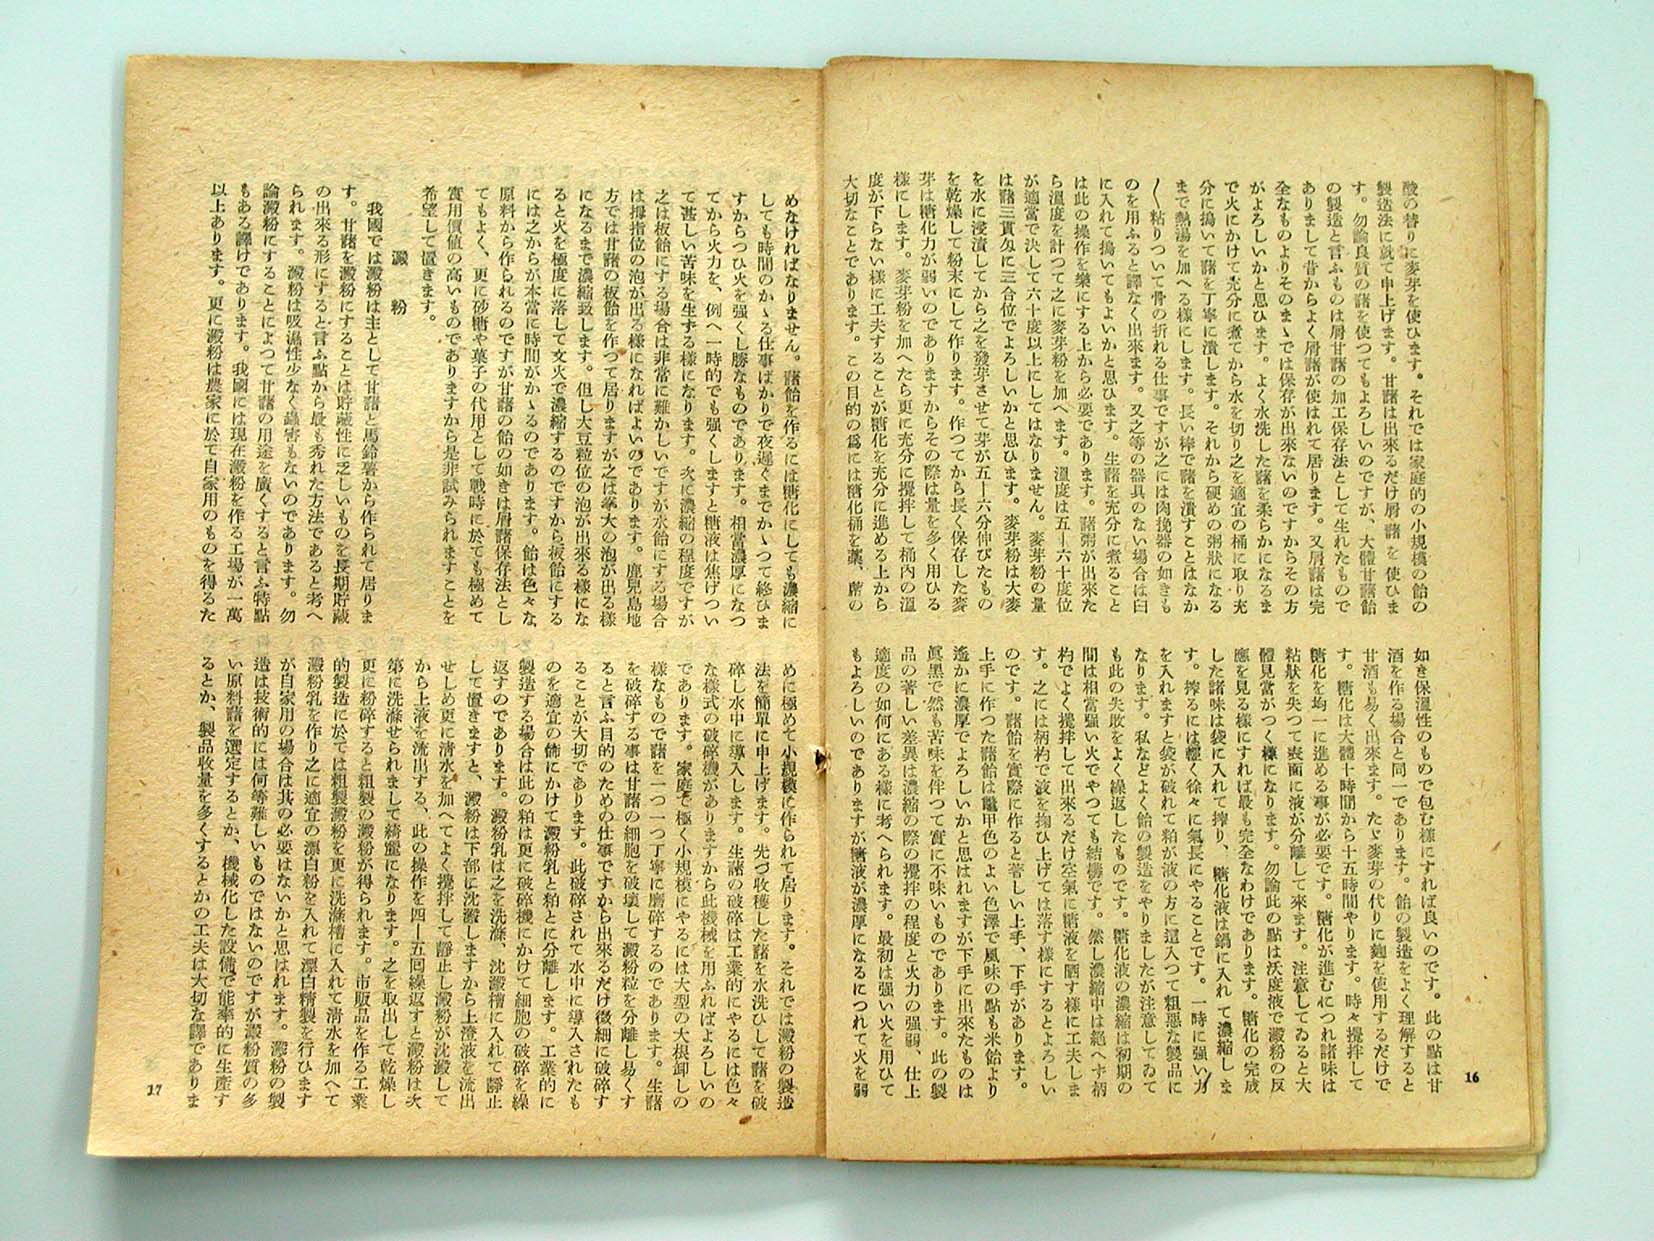 酸の替りに麥芽を使ひます。それでは家庭的の小規模の飴の
製造法に就て申上げます。甘藷は出來るだけ屑藷を使ひま
す。勿論良質の藷を使つてもよろしいのですが、大體甘藷飴
の製造と言ふものは屑甘藷の加工保存法として生れたもので
ありまして昔からよく屑藷が使はれて居ります。又屑藷は完
全なものよりそのまゝでは保存が出來ないのですからその方
がよろしいかと思ひます。よく水洗した藷を柔らかになるま
で火にかけて充分に煮てから水を切り之を適宜の桶に取り充
分に搗いて藷を丁寧に潰します。それから硬めの粥狀になる
まで熱湯を加へる樣にします。長い棒で藷を潰すことはなか
〱粘りついて骨の折れる仕事ですが之には肉挽器の如きも
のを用ふると譯なく出來ます。又之等の器具のない場合は臼
に入れて搗いてもよいかと思ひます。生藷を充分に煮ること
は此の操作を樂にする上から必要であります。藷粥が出來た
ら溫度を計つて之に麥芽粉を加へます。溫度は五—六十度位
が適當で決して六十度以上にしてはなりません。麥芽粉の量
は藷三貫匁に三合位でよろしいかと思ひます。麥芽粉は大麥
を水に浸漬してから之を發芽させて芽が五—六分伸びたもの
を乾燥して粉末にして作ります。作つてから長く保存した麥
芽は糖化力が弱いのでありますからその際は量を多く用ひる
樣にします。麥芽粉を加へたら更に充分に攪拌して桶內の溫
度が下らない樣に工夫することが糖化を充分に進める上から
大切なことであります。この目的の爲には糖化桶を藁、蓆の
如き保溫性のもので包む樣にすれば良いのです。此の點は甘
酒を作る場合と同一であります。飴の製造をよく理解すると
甘酒も易く出來ます。たゞ麥芽の代りに麴を使用するだけで
す。糖化は大體十時間から十五時間やります。時々攪拌して
糖化を均一に進める事が必要です。糖化が進むにつれ藷味は
粘狀を失つて表面に液が分離して來ます。注意してゐると大
體見當がつく樣になります。勿論此の點は沃度液で澱粉の反
應を見る樣にすれば最も完全なわけであります。糖化の完成
した藷味は袋に入れて搾り、糖化液は鍋に入れて濃縮しま
す。搾るには輕く徐々に氣長にやることです。一時に強い力
を入れますと袋が破れて粕が液の方に這入つて粗惡な製品に
なります。私などよく飴の製造をやりましたが注意してゐて
も此の失敗をよく繰返したものです。糖化液の濃縮は初期の
間は相當强い火でやつても結構です。然し濃縮中は絕へず柄
杓でよく攪拌して出來るだけ空氣に糖液を晒す樣に工夫しま
す。之には柄杓で液を掬ひ上げては落す樣にするとよろしい
のです。藷飴を實際に作ると著しい上手、下手があります。
上手に作つた藷飴は鼈甲色のよい色澤で風味の點も米飴より
遙かに濃厚でよろしいかと思はれますが下手に出來たものは
眞黑で然も苦味を伴つて實に不味いものであります。此の製
品の著しい差異は濃縮の際の攪拌の程度と火力の强弱、仕上
適度の如何にある樣に考へられます。最初は强い火を用ひて
もよろしいのでありますが糖液が濃厚になるにつれて火を弱
16
めなければなりません。藷飴を作るには糖化にしても濃縮に
しても時間のかゝる仕事ばかりで夜遲くまでかゝつて終ひま
すからつひ火を强くし勝なものであります。相當濃厚になつ
てから火力を、例へ一時的でも强くしますと糖液は焦げつい
て甚しい苦味を生ずる樣になります。次に濃縮の程度ですが
之は板飴にする場合は非常に難かしいですが水飴にする場合
は拇指位の泡が出る樣になればよいのであります。鹿兒島地
方では甘藷の板飴を作つて居りますが之は拳大の泡が出る樣
になるまで濃縮致します。但し大豆粒位の泡が出來る樣にな
ると火を極度に落して文火で濃縮するのですから板飴にする
には之からが本當に時間がかゝるのであります。飴は色々な
原料から作られるのですが甘藷の飴の如きは屑藷保存法とし
てもよく、更に砂糖や菓子の代用として戰時に於ても極めて
實用價値の高いものでありますから是非試みられますことを
希望して置きます。
澱粉
我國では澱粉は主として甘藷と馬鈴薯から作られて居りま
す。甘藷を澱粉にすることは貯藏性に乏しいものを長期貯藏
の出來る形にすると言ふ點から最も秀れた方法であると考へ
られます。澱粉は吸濕性少なく蟲害もないのであります。勿
論澱粉にすることによつて甘藷の用途を廣くすると言ふ特點
もある譯けであります。我國には現在澱粉を作る工場が一萬
以上あります。更に澱粉は農家に於て自家用のものを得るた
めに極めて小規模に作られて居ります。それでは澱粉の製造
法を簡單に申上げます。先づ收穫した藷を水洗ひして藷を破
碎し水中に導入します。生藷の破碎は工業的にやるには色々
な樣式の破碎機がありますから此機械を用ふればよろしいの
であります。家庭で極く小規模にやるには大型の大根卸しの
樣なもので藷を一つ一つ丁寧に磨碎するのであります。生藷
を破碎する事は甘藷の細胞を破壞して澱粉粒を分離し易くす
ると言ふ目的のための仕事ですから出來るだけ微細に破碎す
ることが大切であります。此破碎されて水中に導入されたも
のを適宜の篩にかけて澱粉乳と粕とに分離します。工業的に
製造する場合は此の粕は更に破碎機にかけて細胞の破碎を繰
返すのであります。澱粉乳は之を洗滌、沈澱槽に入れて靜止
して置きますと、澱粉は下部に沈澱しますから上澄液を流出
せしめ更に清水を加へてよく攪拌して靜止し澱粉が沈澱して
から上液を流出する、此の操作を四—五回繰返すと澱粉は次
第に洗滌せられまして綺麗になります。之を取出して乾燥し
更に粉碎すると粗製の澱粉が得られます。市販品を作る工業
的製造に於ては粗製澱粉を更に洗滌槽に入れて清水を加へて
澱粉乳を作り之に適宜の漂白粉を入れて漂白精製を行ひます
が自家用の場合は其の必要はないかと思はれます。澱粉の製
造は技術的には何等難しいものではないのですが澱粉質の多
い原料藷を選定するとか、機械化した設備で能率的に生產す
るとか、製品收量を多くするとかの工夫は大切な譯でありま
17